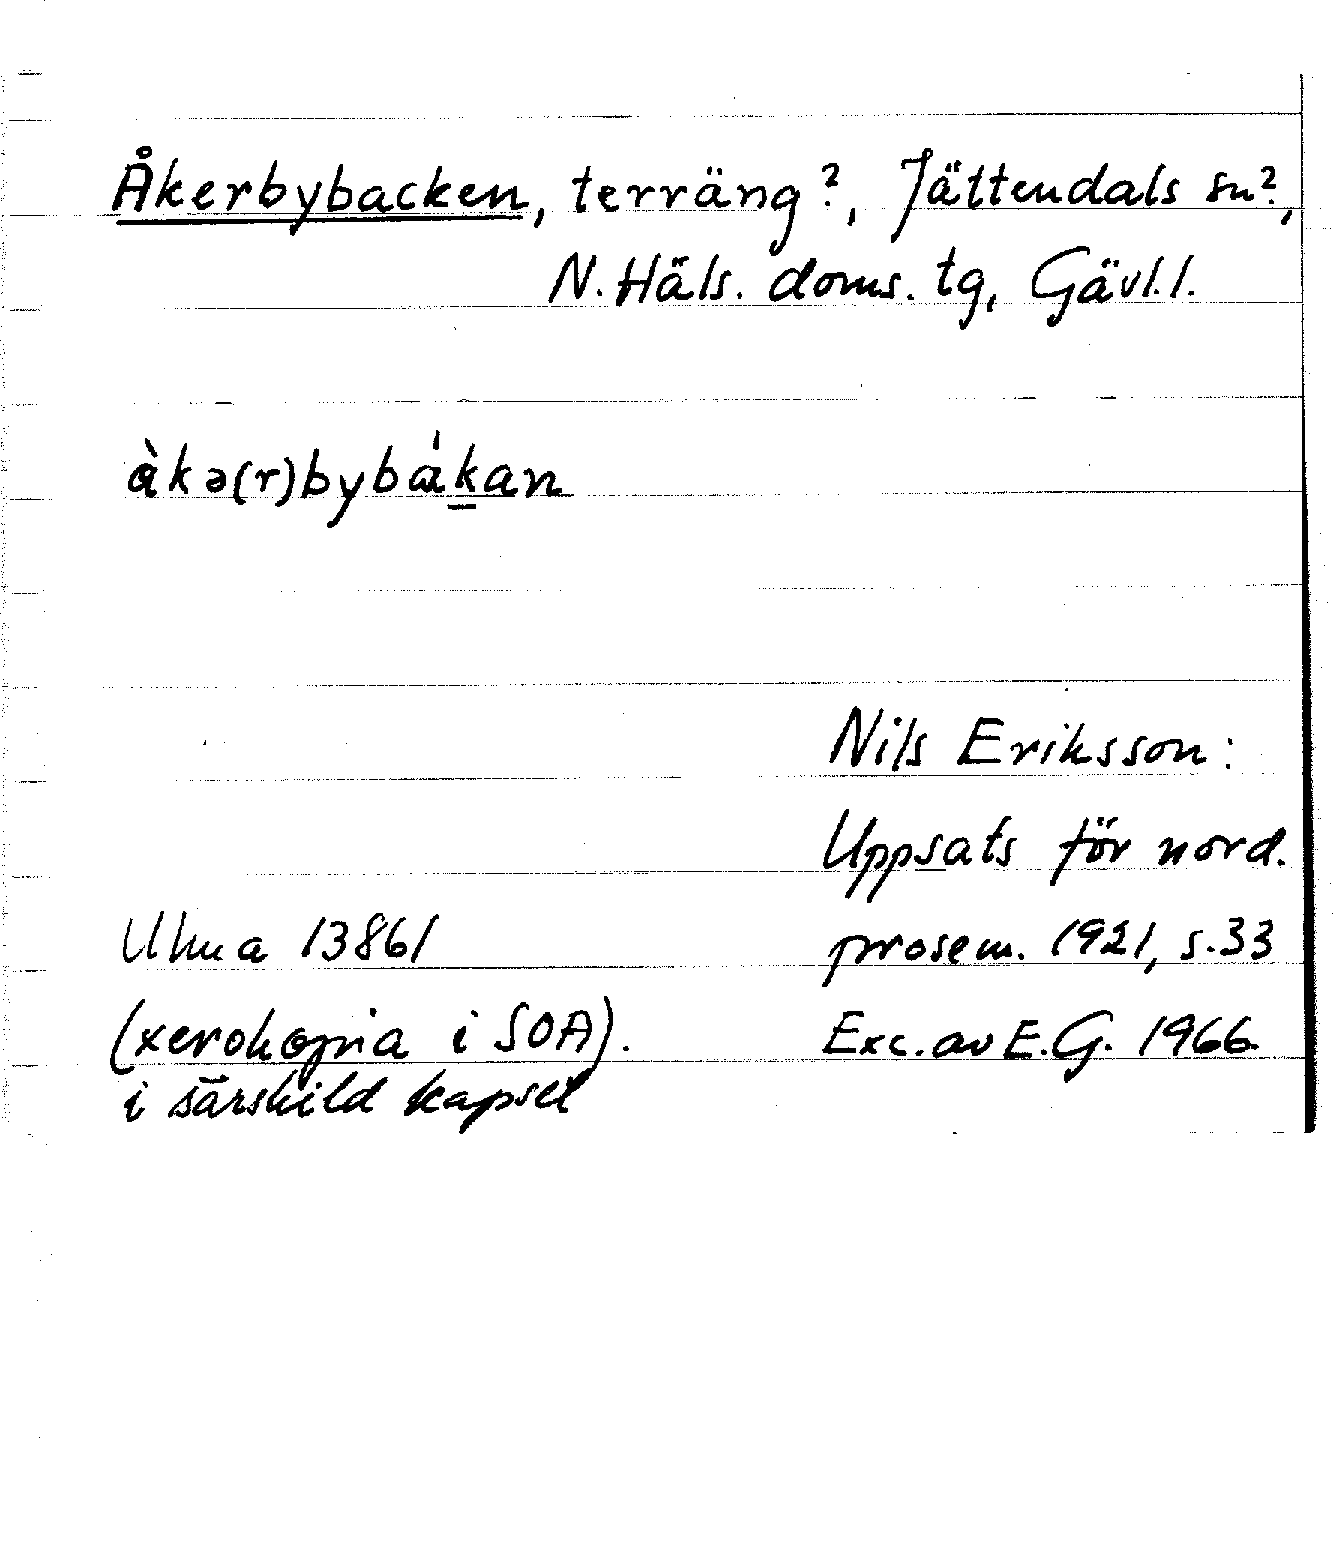 Åkerbybacken, terräng?, Jättendals sn?,
N. Häls. doms. tg, Gävl. l.
àkə(r)bybákan
Nils Eriksson:
Uppsats för nord.
prosem. 1921, s. 33
Exc. av E. G. 1966.
Ulma 13861
(xerokopia i SOA).
i särskild kapsel